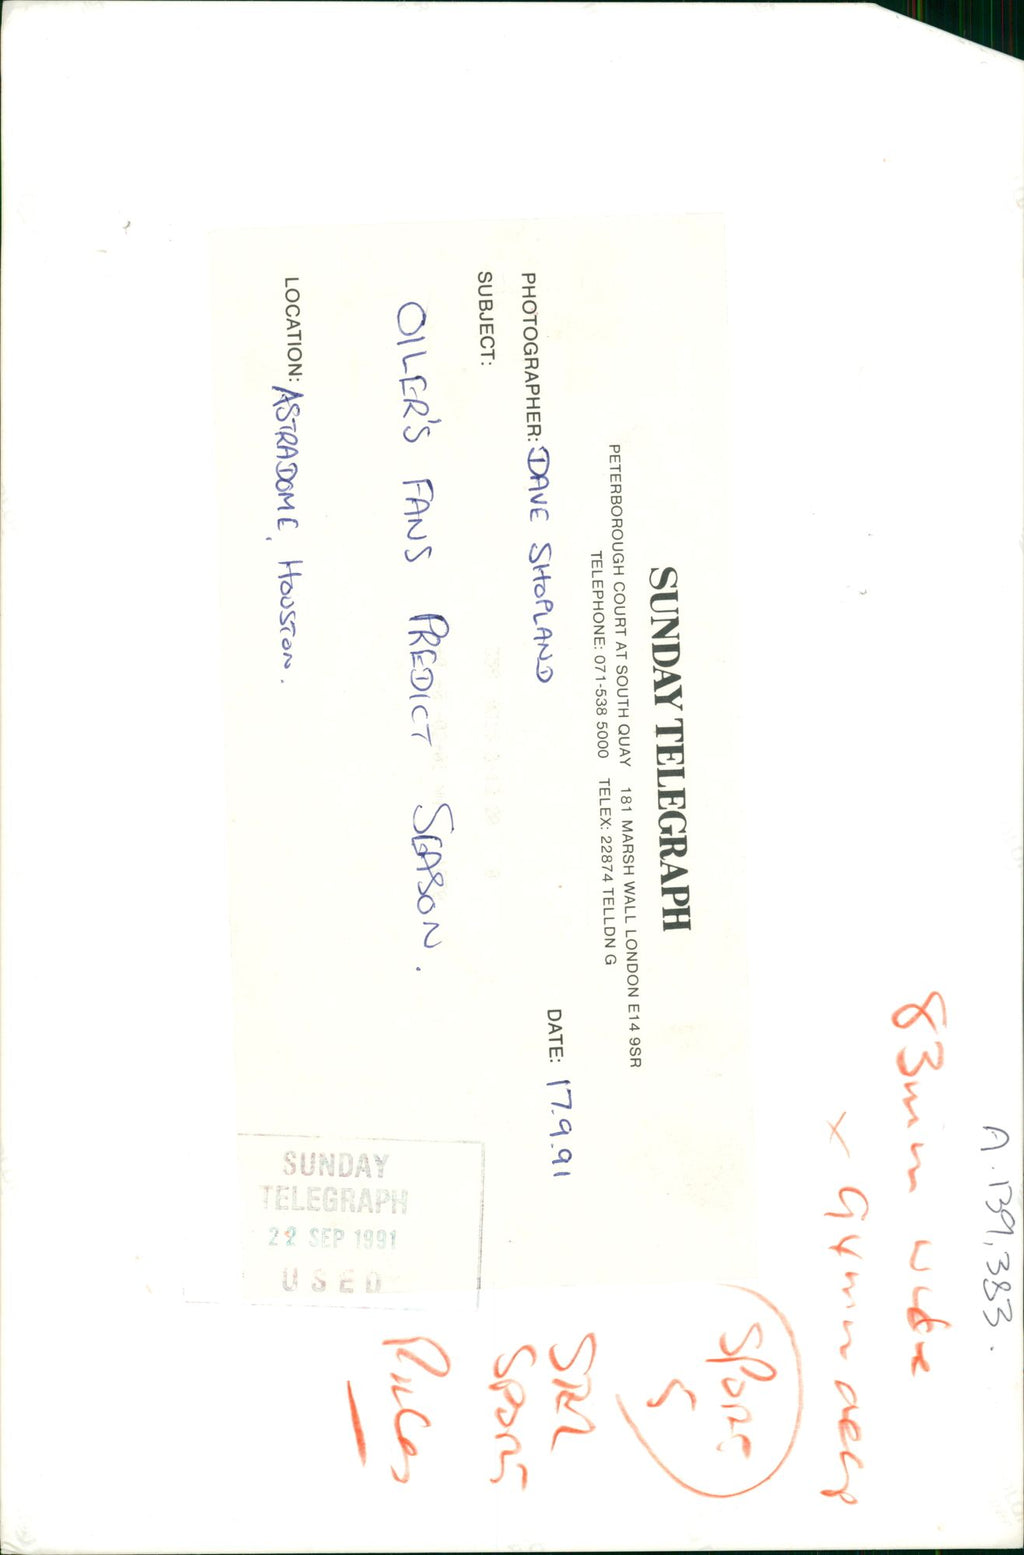 SUNDAY TELEGRAPH
PETERBOROUGH COURT AT SOUTH QUAY 181 MARSH WALL LONDON E14 9SR
TELEPHONE: 071-538 5000 TELEX: 22874 TELLDN G
PHOTOGRAPHER: DAVE SHOPLAND DATE: 17.9.91
SUBJECT:
OILER'S FANS PREDICT SEASON.
LOCATION: ASTRADOME, HOUSTON.
SUNDAY
TELEGRAPH
22 SEP 1991
USED
A.139,383.
83mm wide
x 94mm deep
SPORT
5
SPORT